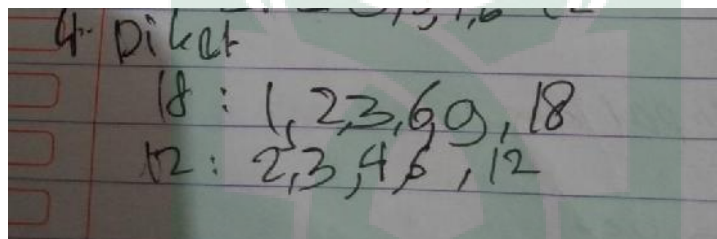 4. Diket
18 : 1, 2, 3, 6, 9, 18
12 : 2, 3, 4, 6, 12